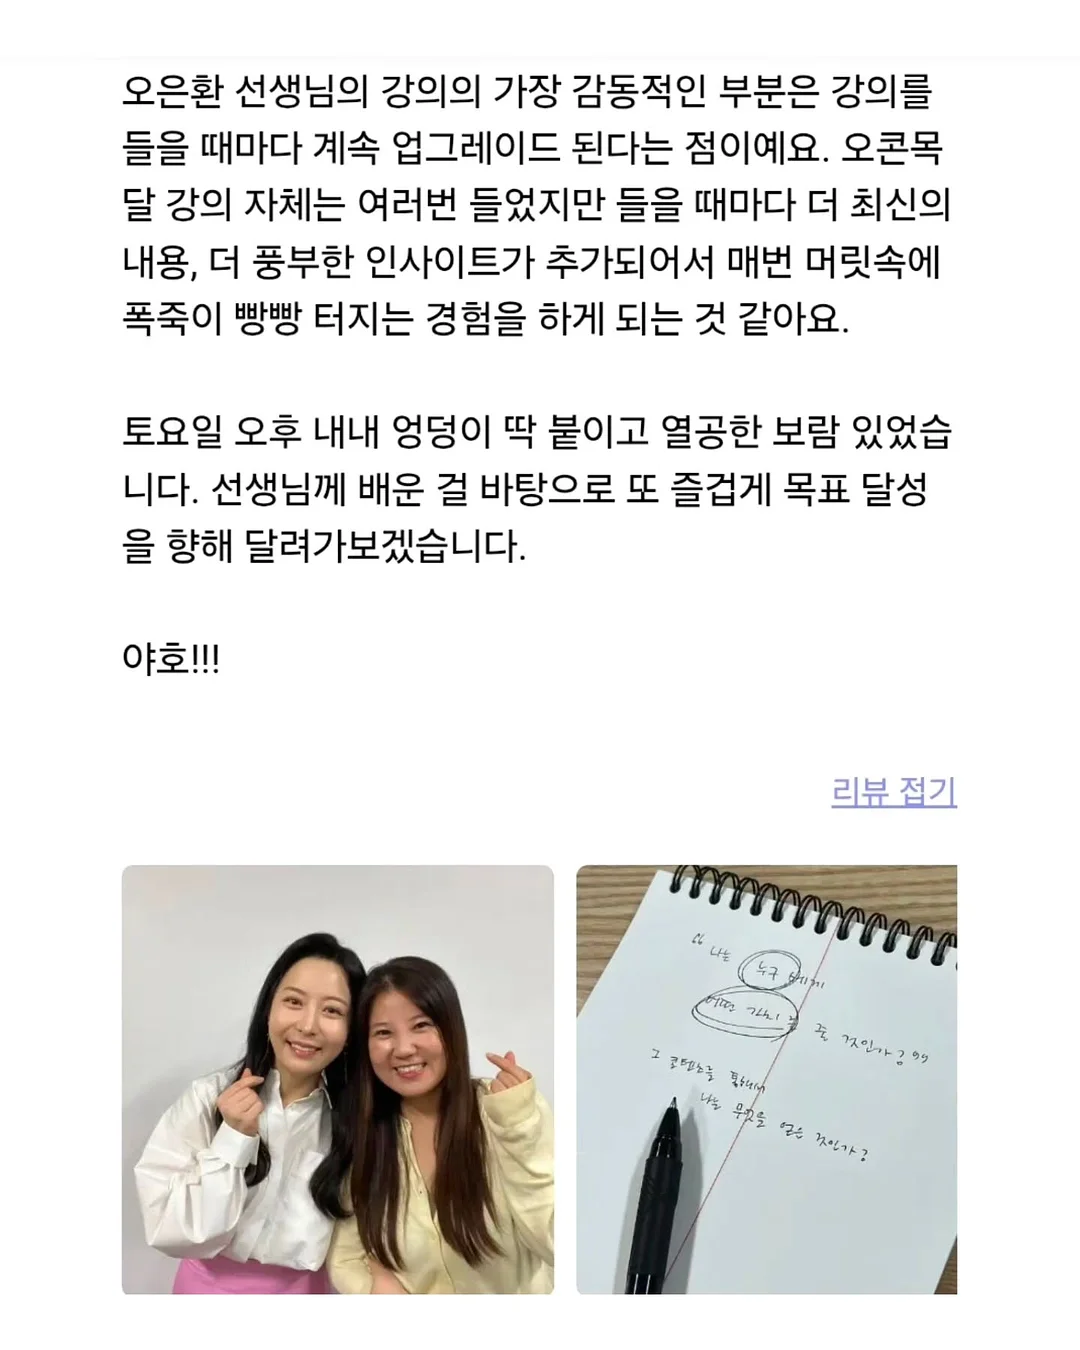 오은환 선생님의 강의의 가장 감동적인 부분은 강의를
들을 때마다 계속 업그레이드 된다는 점이예요. 오콘목
달 강의 자체는 여러번 들었지만 들을 때마다 더 최신의
내용, 더 풍부한 인사이트가 추가되어서 매번 머릿속에
폭죽이 빵빵 터지는 경험을 하게 되는 것 같아요.
토요일 오후 내내 엉덩이 딱 붙이고 열공한 보람 있었습
니다. 선생님께 배운 걸 바탕으로 또 즐겁게 목표 달성
을 향해 달려가보겠습니다.
야호!!!
리뷰 접기
“ 나는 누구에게
어떤 가치를 줄 것인가? ”
그 콘텐츠를 통해서
나는 무엇을 얻을 것인가?